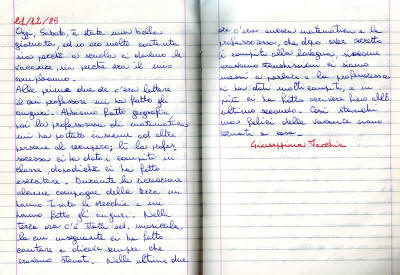 21/12/85
Oggi, Sabato, è stata una bella
giornata, ed io ero molto contenta
sia perché a scuola ci davano le
vacanze, sia perché era il mio
compleanno.
Alle prime due ore c'era lettere
il cui professore mi ha fatto gli
auguri. Abbiamo fatto geografia
poi la professoressa di matematica
mi ha portato insieme ad altre
persone al recupero; lì la profes
soressa ci ha dato i compiti in
classe, dopodiché ci ha fatto
esercitare. Durante la ricreazione
alcune compagne della terza mi
hanno tirato le orecchie e mi
hanno fatto gli auguri. Nella
terza ora c'è stata ed. musicale,
la cui insegnante ci ha fatto
cantare e diceva sempre che
eravamo stonati. Nelle ultime due
ore c'era ancora matematica e la
professoressa, che dopo aver corretto
i compiti alla lavagna, siccome
eravamo stanchissimi ci siamo
messi a parlare e la professoressa
ci ha dato molti compiti, e in
più ci ha fatto scrivere fino all'
ultimo secondo. Così, stanchi
ma felici delle vacanze siamo
tornati a casa.
Giuseppina